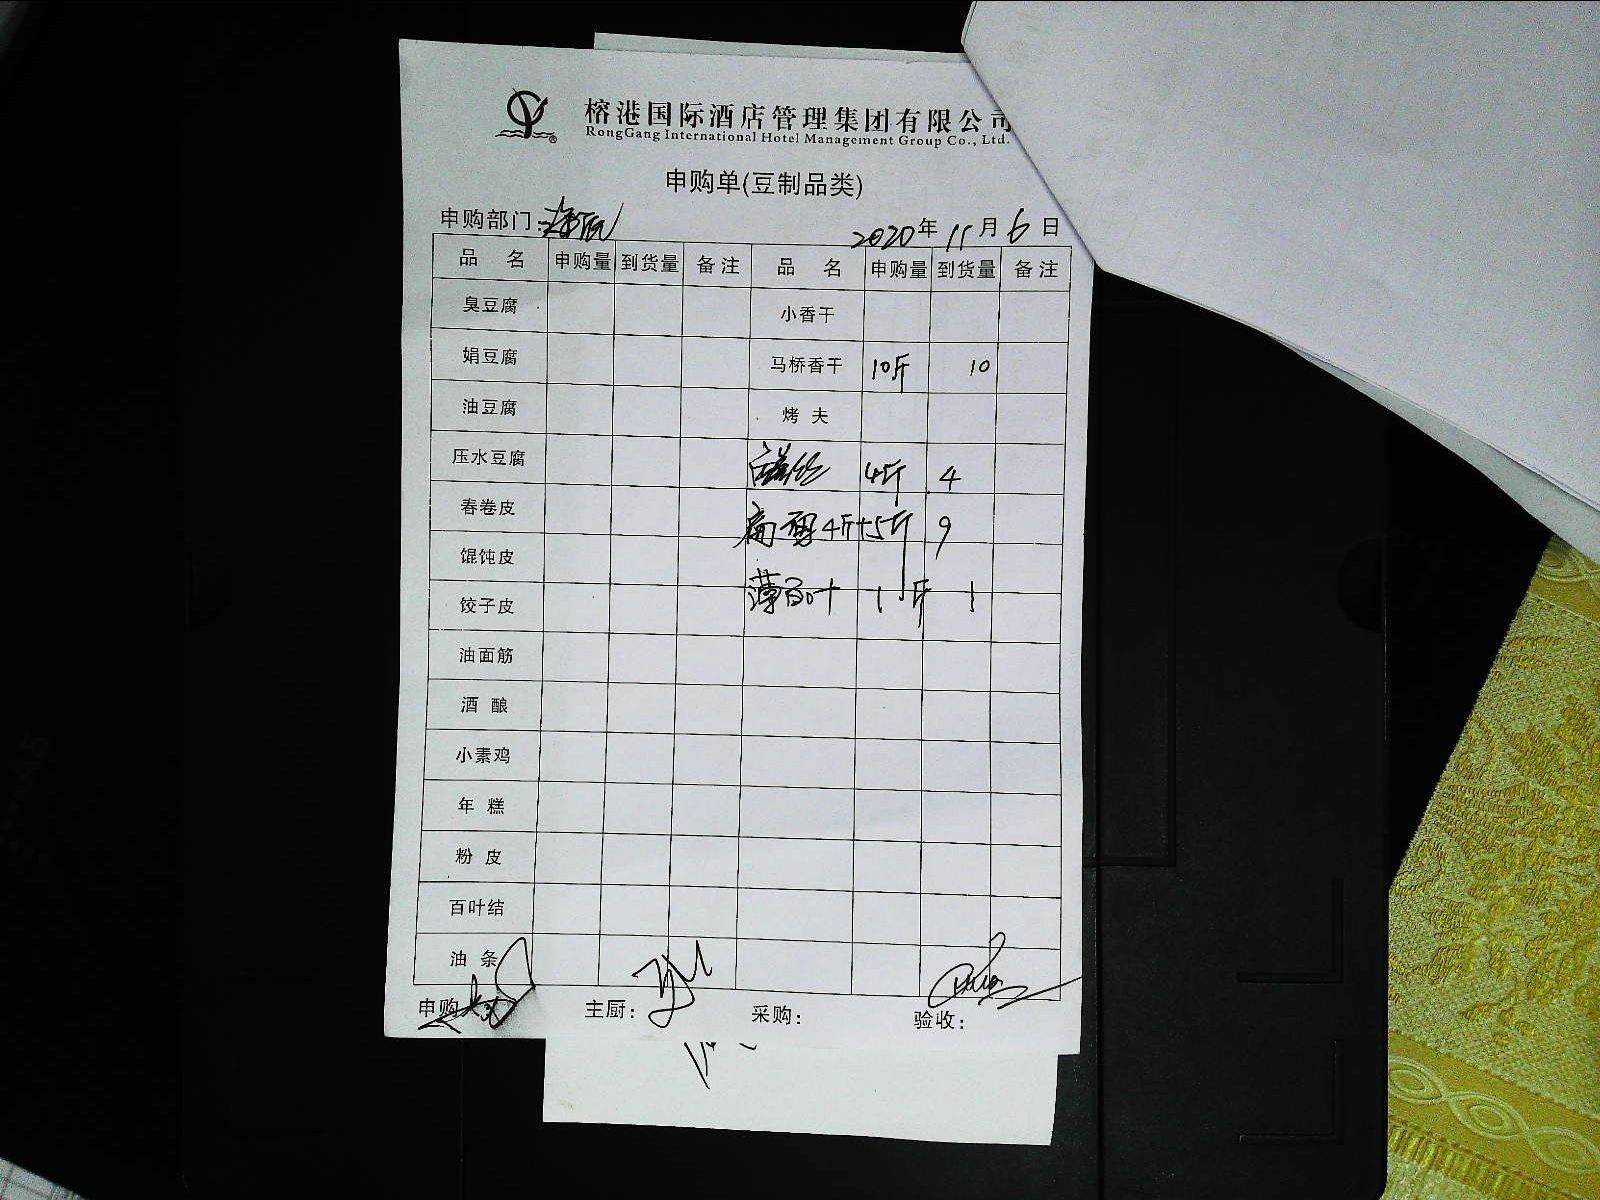 榕港国际酒店管理集团有限公司
RongGang International Hotel Management Group Co., Ltd.
申购单(豆制品类)
申购部门: 2020年11月6日
品 名 申购量 到货量 备注 品 名 申购量 到货量 备注
臭豆腐 小香干
娟豆腐 马桥香干 10斤 10
油豆腐 烤 夫
压水豆腐 丝 4斤 4
春卷皮 4斤+5斤 9
馄饨皮
饺子皮 薄百叶 1斤 1
油面筋
酒 酿
小素鸡
年 糕
粉 皮
百叶结
油 条
申购 主厨: 采购: 验收: